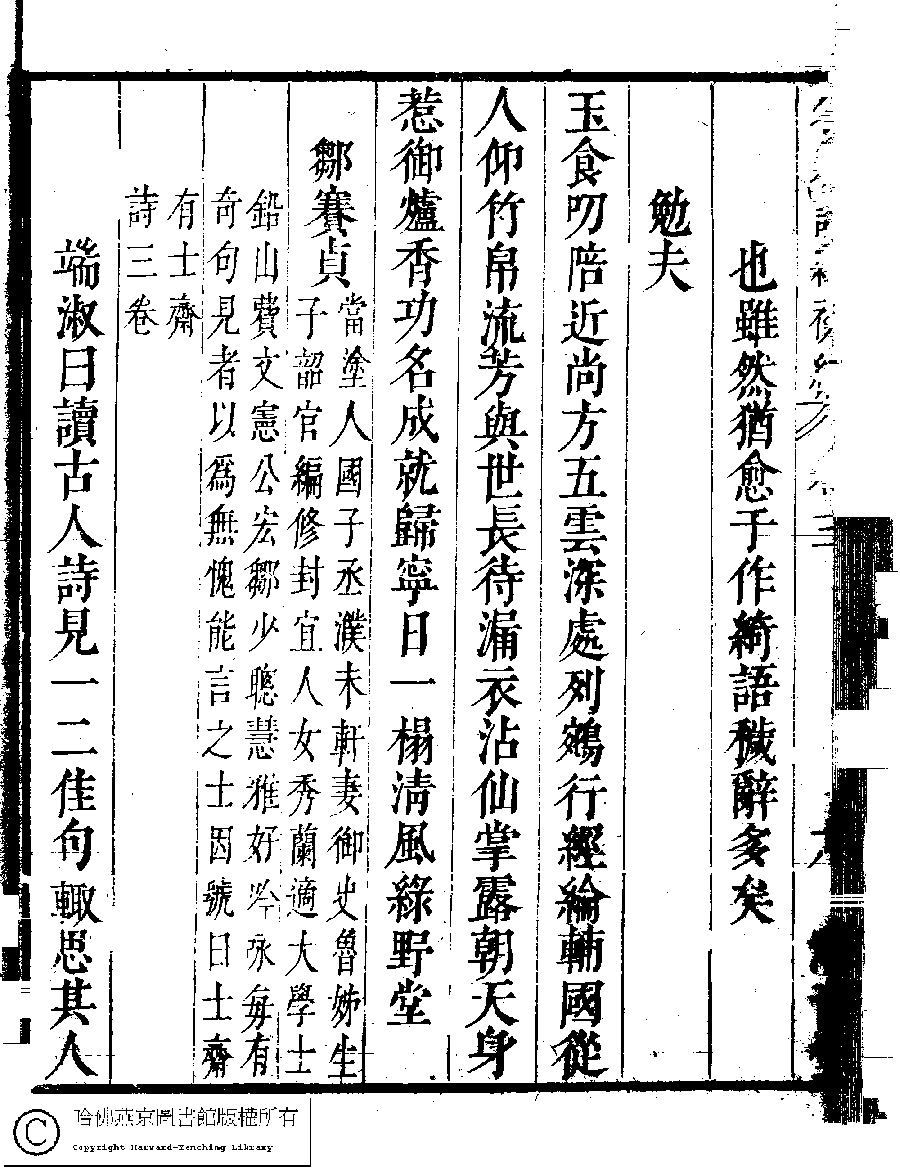 也雖然猶愈于作綺語穢辭多矣
勉夫
玉食叨陪近尚方五雲深處列鵷行經綸輔國從
人仰竹帛流芳與世長待漏衣沾仙掌露朝天身
惹御爐香功名成就歸寧日一榻清風綠野堂
鄒賽貞
當塗人國子丞濮未軒妻御史魯姊生
子韶官編修封宜人女秀蘭適大學士
鉛山費文憲公宏鄒少聰慧雅好吟永每有
奇句見者以爲無愧能言之士因號曰士齋
有士齋
詩三卷
端淑曰讀古人詩見一二佳句輙思其人
哈佛燕京圖書館版權所有
Copyright Harvard-Yenching Library